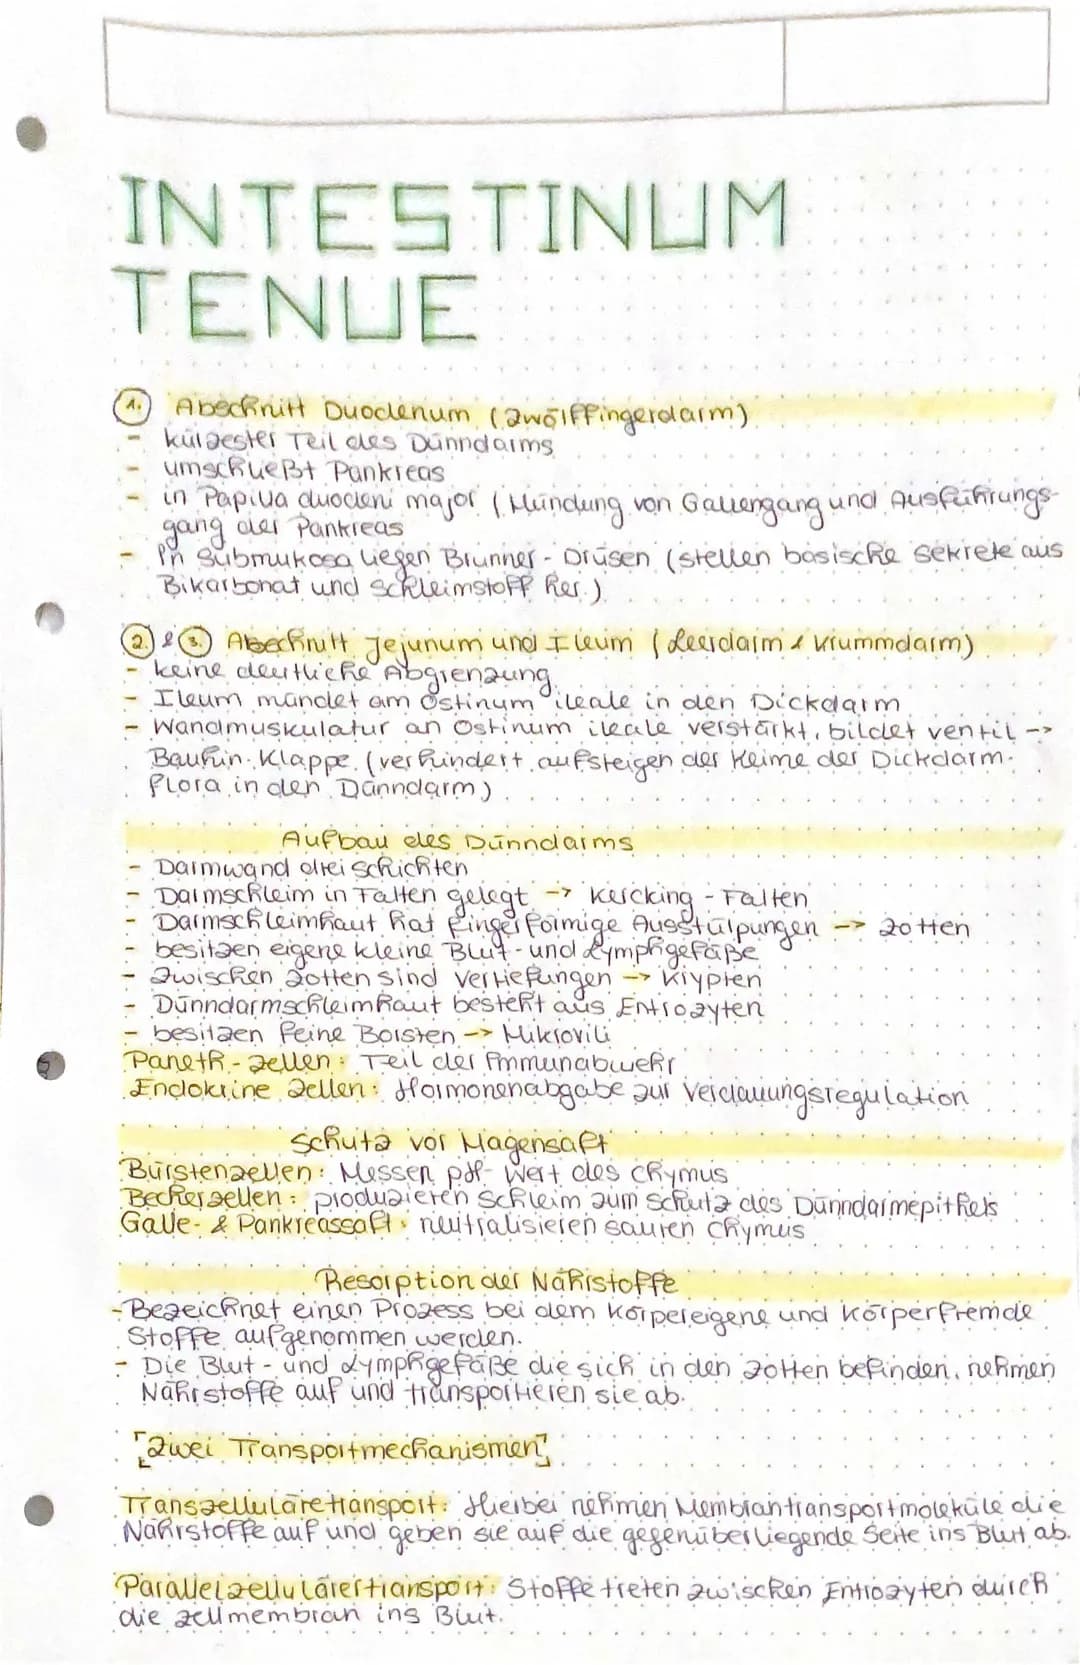 INTESTINUM
TENUE
1. Abschnitt Duodenum (Zwölffingerdarm)
- kürzester Teil des Dünndarms
- umschließt Pankreas
- in Papilla duodeni major (Mündung von Gallengang und Ausführungs-
gang der Pankreas
- in Submukosa liegen Brunner-Drüsen (stellen basische Sekrete aus
Bikarbonat und Schleimstoff her.)
2. & 3. Abschnitt Jejunum und Ileum (Leerdarm & Krummdarm)
- keine deutliche Abgrenzung
- Ileum mündet am Ostinum ileale in den Dickdarm
- Wandmuskulatur an Ostinum ileale verstärkt, bildet ventil ->
Bauhin-Klappe (verhindert aufsteigen der Keime der Dickdarm-
flora in den Dünndarm)
Aufbau des Dünndarms
- Darmwand drei schichten
- Darmschleim in Falten gelegt -> Kercking-Falten
- Darmschleimhaut hat fingerförmige Ausstülpungen -> Zotten
- besitzen eigene kleine Blut- und Lymphgefäße
- Zwischen Zotten sind Vertiefungen -> Krypten
- Dünndarmschleimhaut besteht aus Entrozyten
- besitzen feine Borsten -> Mikrovili
Paneth-Zellen: Teil der Immunabwehr
Endokrine Zellen: Hormonenabgabe zur Verdauungsregulation
Schutz vor Magensaft
Bürstenzellen: Messen pH-Wert des Chymus
Becherzellen: produzieren Schleim zum Schutz des Dünndarmepithels
Galle- & Pankreassaft: neutralisieren sauren Chymus
Resorption der Nährstoffe
- Bezeichnet einen Prozess bei dem körpereigene und körperfremde
Stoffe aufgenommen werden.
- Die Blut- und Lymphgefäße die sich in den Zotten befinden, nehmen
Nährstoffe auf und transportieren sie ab.
[Zwei Transportmechanismen]
Transzelluläretransport: Hierbei nehmen Membrantransportmoleküle die
Nährstoffe auf und geben sie auf die gegenüberliegende Seite ins Blut ab.
Parallelzellulärertransport: Stoffe treten zwischen Entrozyten durch
die zellmembran ins Blut.